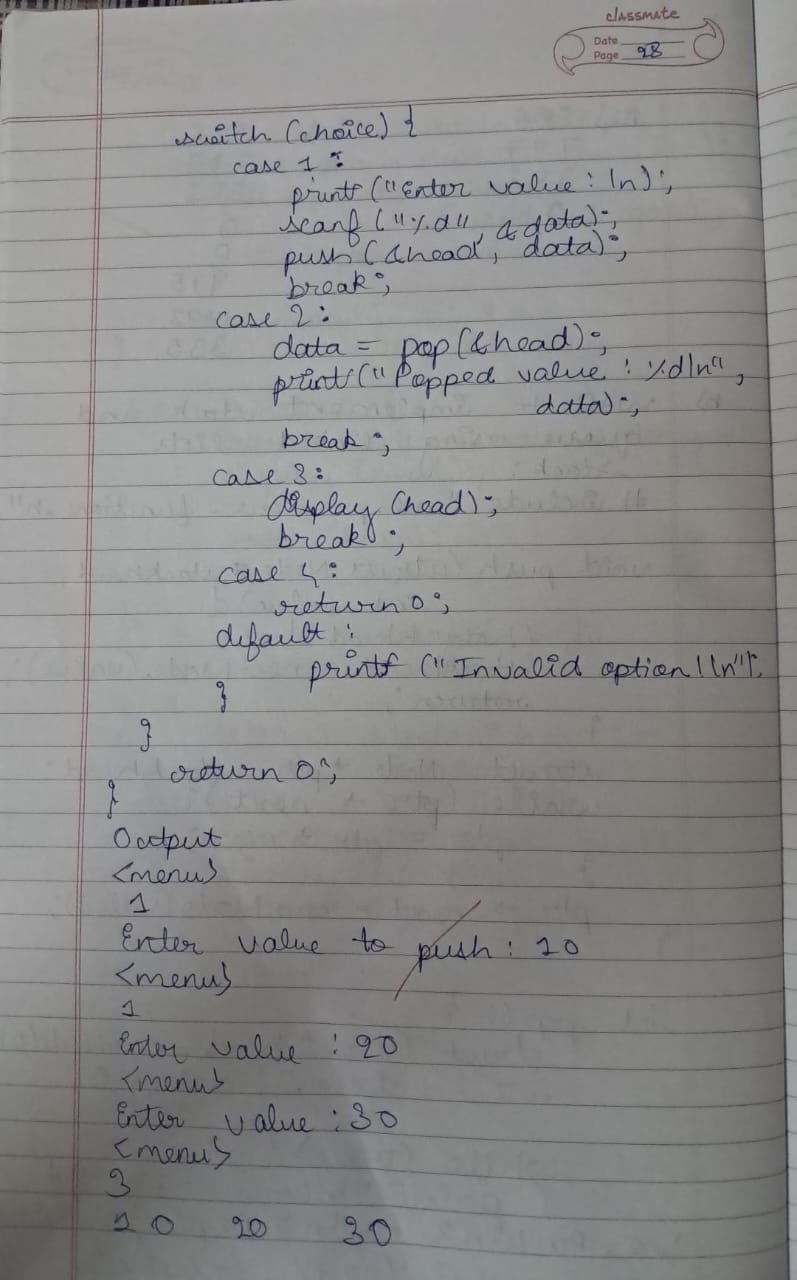 classmate
Date
Page 28
switch (choice) {
case 1 :
printf ("Enter value : \n);
scanf ("%d", &data);
push (&head, data);
break;
case 2:
data = pop (&head);
printf ("Popped value : %d\n",
data);
break;
case 3:
display (head);
break;
case 4:
return 0;
default :
printf ("Invalid option!\n");
}
}
return 0;
}
Output
<menu>
1
Enter value to push : 10
<menu>
1
Enter value : 20
<menu>
Enter value : 30
<menu>
3
10 20 30